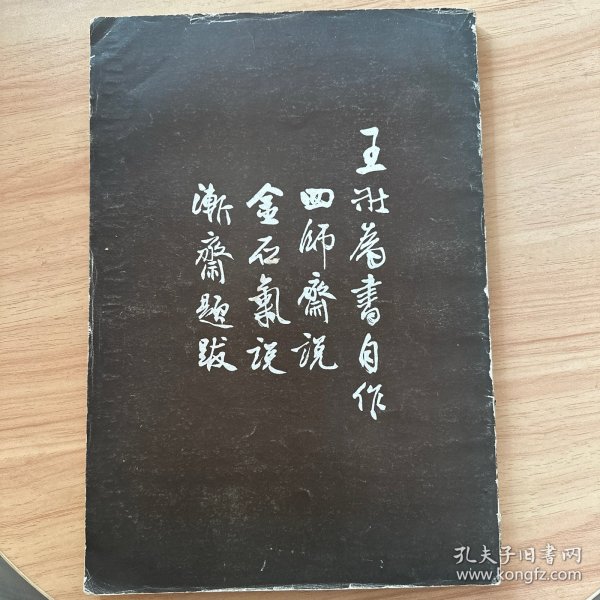 王壮為書自作
四師齋説
金石氣説
漸齋題跋
孔夫子旧書网
www.kongfz.com